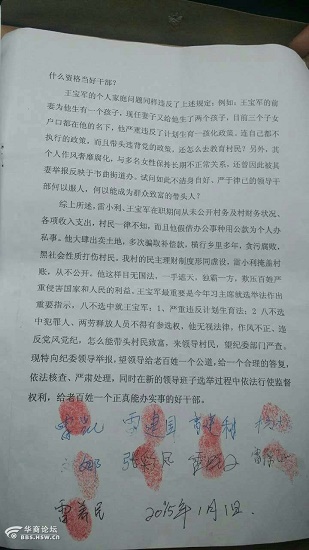 什么资格当好干部?
王宝军的个人家庭问题同样违反了上述规定;例如,王宝军的前
妻为他生有一个孩子,现任妻子又给他生了两个孩子,目前三个子女
户口都在他的名下,他严重违反了计划生育一孩化政策。连自己都不
执行的政策,而且带头违背党的政策。还怎么去教育村民?另外,其
个人作风奢靡腐化,与多名女性保持长期不正常关系,还曾因此被其
妻举报反映于市曲街道办。试问如此不洁身自好、严于律已的领导干
部何以服人,何以能成为群众致富的带头人?
综上所述,雷小利、王宝军在职期间从未公开村务及村财务状况、
各项收入支出,村民一律不知。而且他假借办公事种用公款为个人办
私事。他大肆出卖土地,多次骗取补偿款,横行乡里多年,贪污腐败,
黑社会性质打伤村民。我村的民主理财制度形同虚设,雷小利掩盖村
账,从不公开。他这样目无国法,一手遮天,独霸一方,欺压百姓严
重侵害国家和人民的利益。王宝军最重要是今年习主席就选举法作出
重要指示,八不选中就王宝军:1、严重违反计划生育法;2 八不选
中犯罪人、两劳释放人员不得有参选权,他无视法律,作风不正、违
反党风党纪,怎么能带头村民致富,来领导村民,望纪委部门严查。
现特向纪委领导举报,望领导给老百姓一个公道,给一个合理的答复,
依法核查、严肃处理,同时在新的领导班子选举过程中依法行使监督
权利,给老百姓一个正真能办实事的好干部。
2015年1月1日.
华商论坛
BBS.HSW.CN